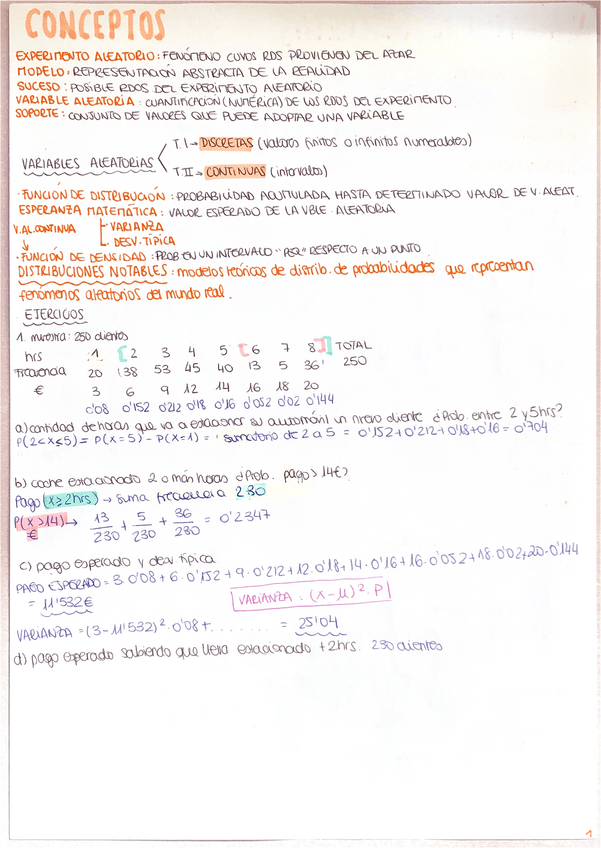 CONCEPTOS
EXPERIMENTO ALEATORIO: FENÓMENO CUYOS RDS PROVIENEN DEL AZAR
MODELO: REPRESENTACIÓN ABSTRACTA DE LA REALIDAD
SUCESO: POSIBLE RDOS DEL EXPERIMENTO ALEATORIO
VARIABLE ALEATORIA: CUANTIFICACIÓN (NUMÉRICA) DE LOS RDOS DEL EXPERIMENTO
SOPORTE: CONJUNTO DE VALORES QUE PUEDE ADOPTAR UNA VARIABLE
T.I → DISCRETAS (valores finitos o infinitos numerables)
VARIABLES ALEATORIAS
T.II → CONTINUAS (intervalos)
· FUNCIÓN DE DISTRIBUCIÓN: PROBABILIDAD ACUMULADA HASTA DETERMINADO VALOR DE V. ALEAT.
ESPERANZA MATEMÁTICA: VALOR ESPERADO DE LA VBLE. ALEATORIA
V.AL.CONTINUA
VARIANZA
DESV. TÍPICA
· FUNCIÓN DE DENSIDAD: PROB. EN UN INTERVALO "PEQ" RESPECTO A UN PUNTO
DISTRIBUCIONES NOTABLES: modelos teóricos de distrib. de probabilidades que representan
fenómenos aleatorios del mundo real.
EJERCICIOS
1. muestra: 250 clientes
hrs 1 [2 3 4 5 [6 7 8]] TOTAL
frecuencia 20 38 53 45 40 13 5 36 250
€ 3 6 9 12 14 16 18 20
0'08 0'152 0'212 0'18 0'16 0'052 0'02 0'144
a) cantidad de horas que va a estacionar su automóvil un nuevo cliente ¿Prob. entre 2 y 5hrs?
P(2<x≤5) = P(x=5) - P(x=1) = sumatorio de 2 a 5 = 0'152+0'212+0'18+0'16 = 0'704
b) coche estacionado 2 o más horas ¿Prob. pago > 14€?
Pago (x≥2hrs) → suma frecuencia 230
P(x>14) → 13/230 + 5/230 + 36/230 = 0'2347
€
c) pago esperado y desv típica
PAGO ESPERADO = 3·0'08 + 6·0'152 + 9·0'212 + 12·0'18 + 14·0'16 + 16·0'052 + 18·0'02 + 20·0'144
= 11'532€
VARIANZA: (x-μ)²·P
VARIANZA = (3-11'532)²·0'08 + ........ = 25'04
d) pago esperado sabiendo que lleva estacionado +2hrs. 230 clientes
1